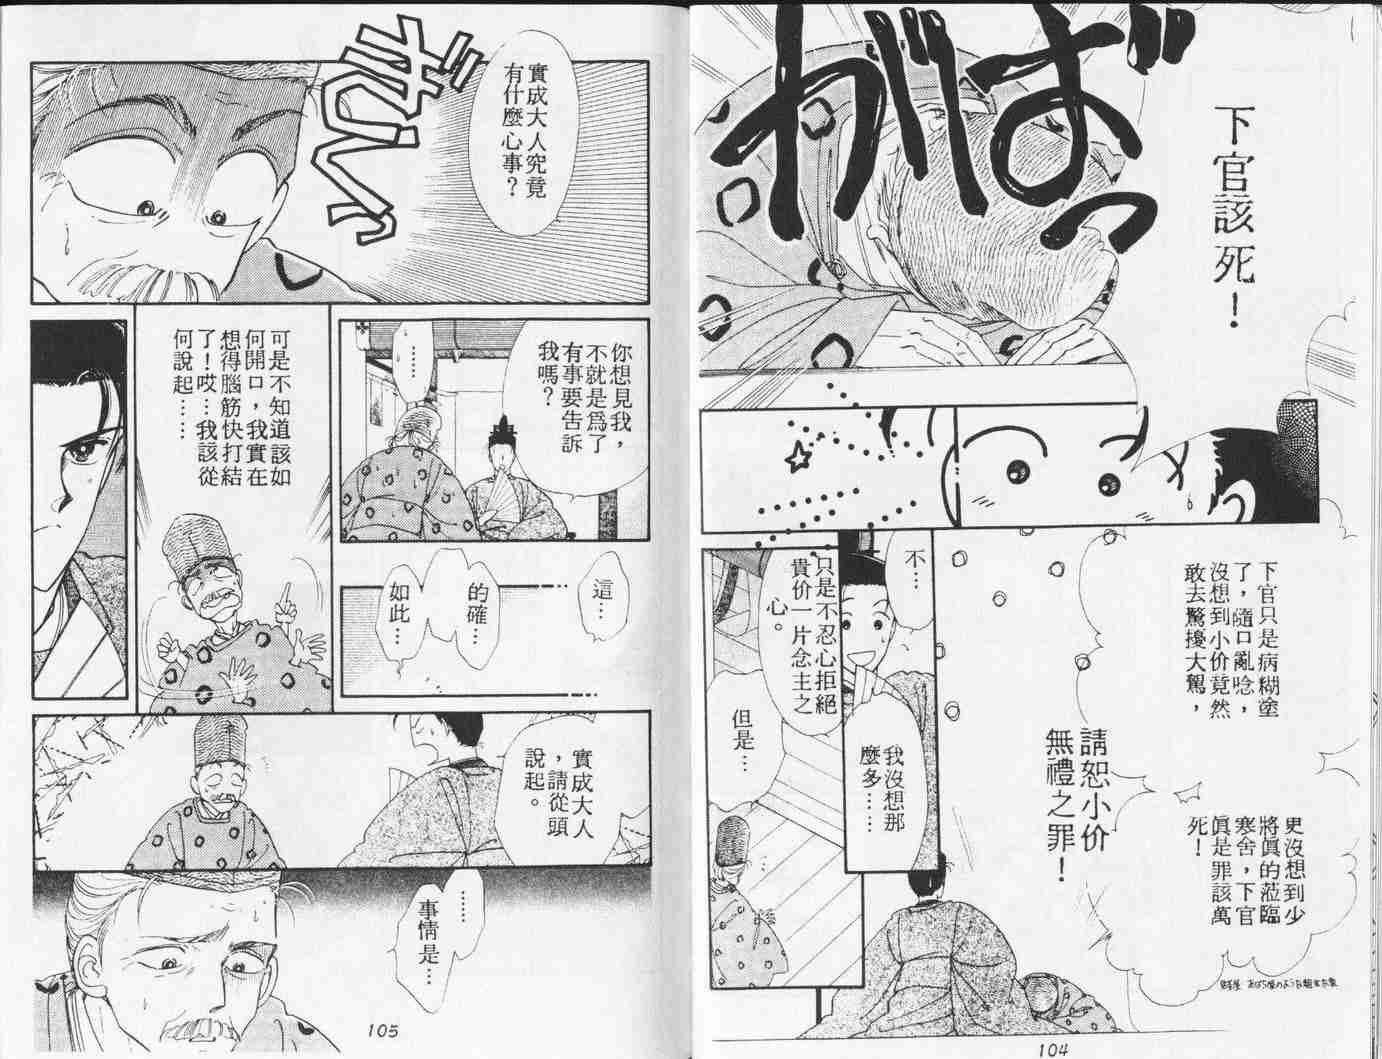 がばっ
下官該死！
下官只是病糊塗
了，隨口亂唸，
沒想到小价竟然
敢去驚擾大駕，
請恕小价
無禮之罪！
更沒想到少
將真的蒞臨
寒舍，下官
真是罪該萬
死！
不…
只是不忍心拒絕
貴价一片念主之
心。
我沒想那
麼多……
但是…
104
實成大人究竟
有什麼心事？
ぎくっ
你想見我，
不就是為了
有事要告訴
我嗎？
……
這…
的確…
如此…
可是不知道該如
何開口，我實在
想得腦筋快打結
了！哎…我該從
何說起……
實成大人
，請從頭
說起。
……
事情是…
105